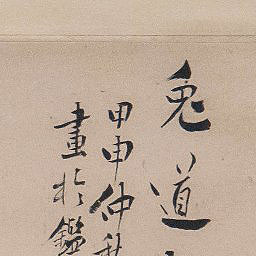 兔道
甲申仲秋
畫於鑑